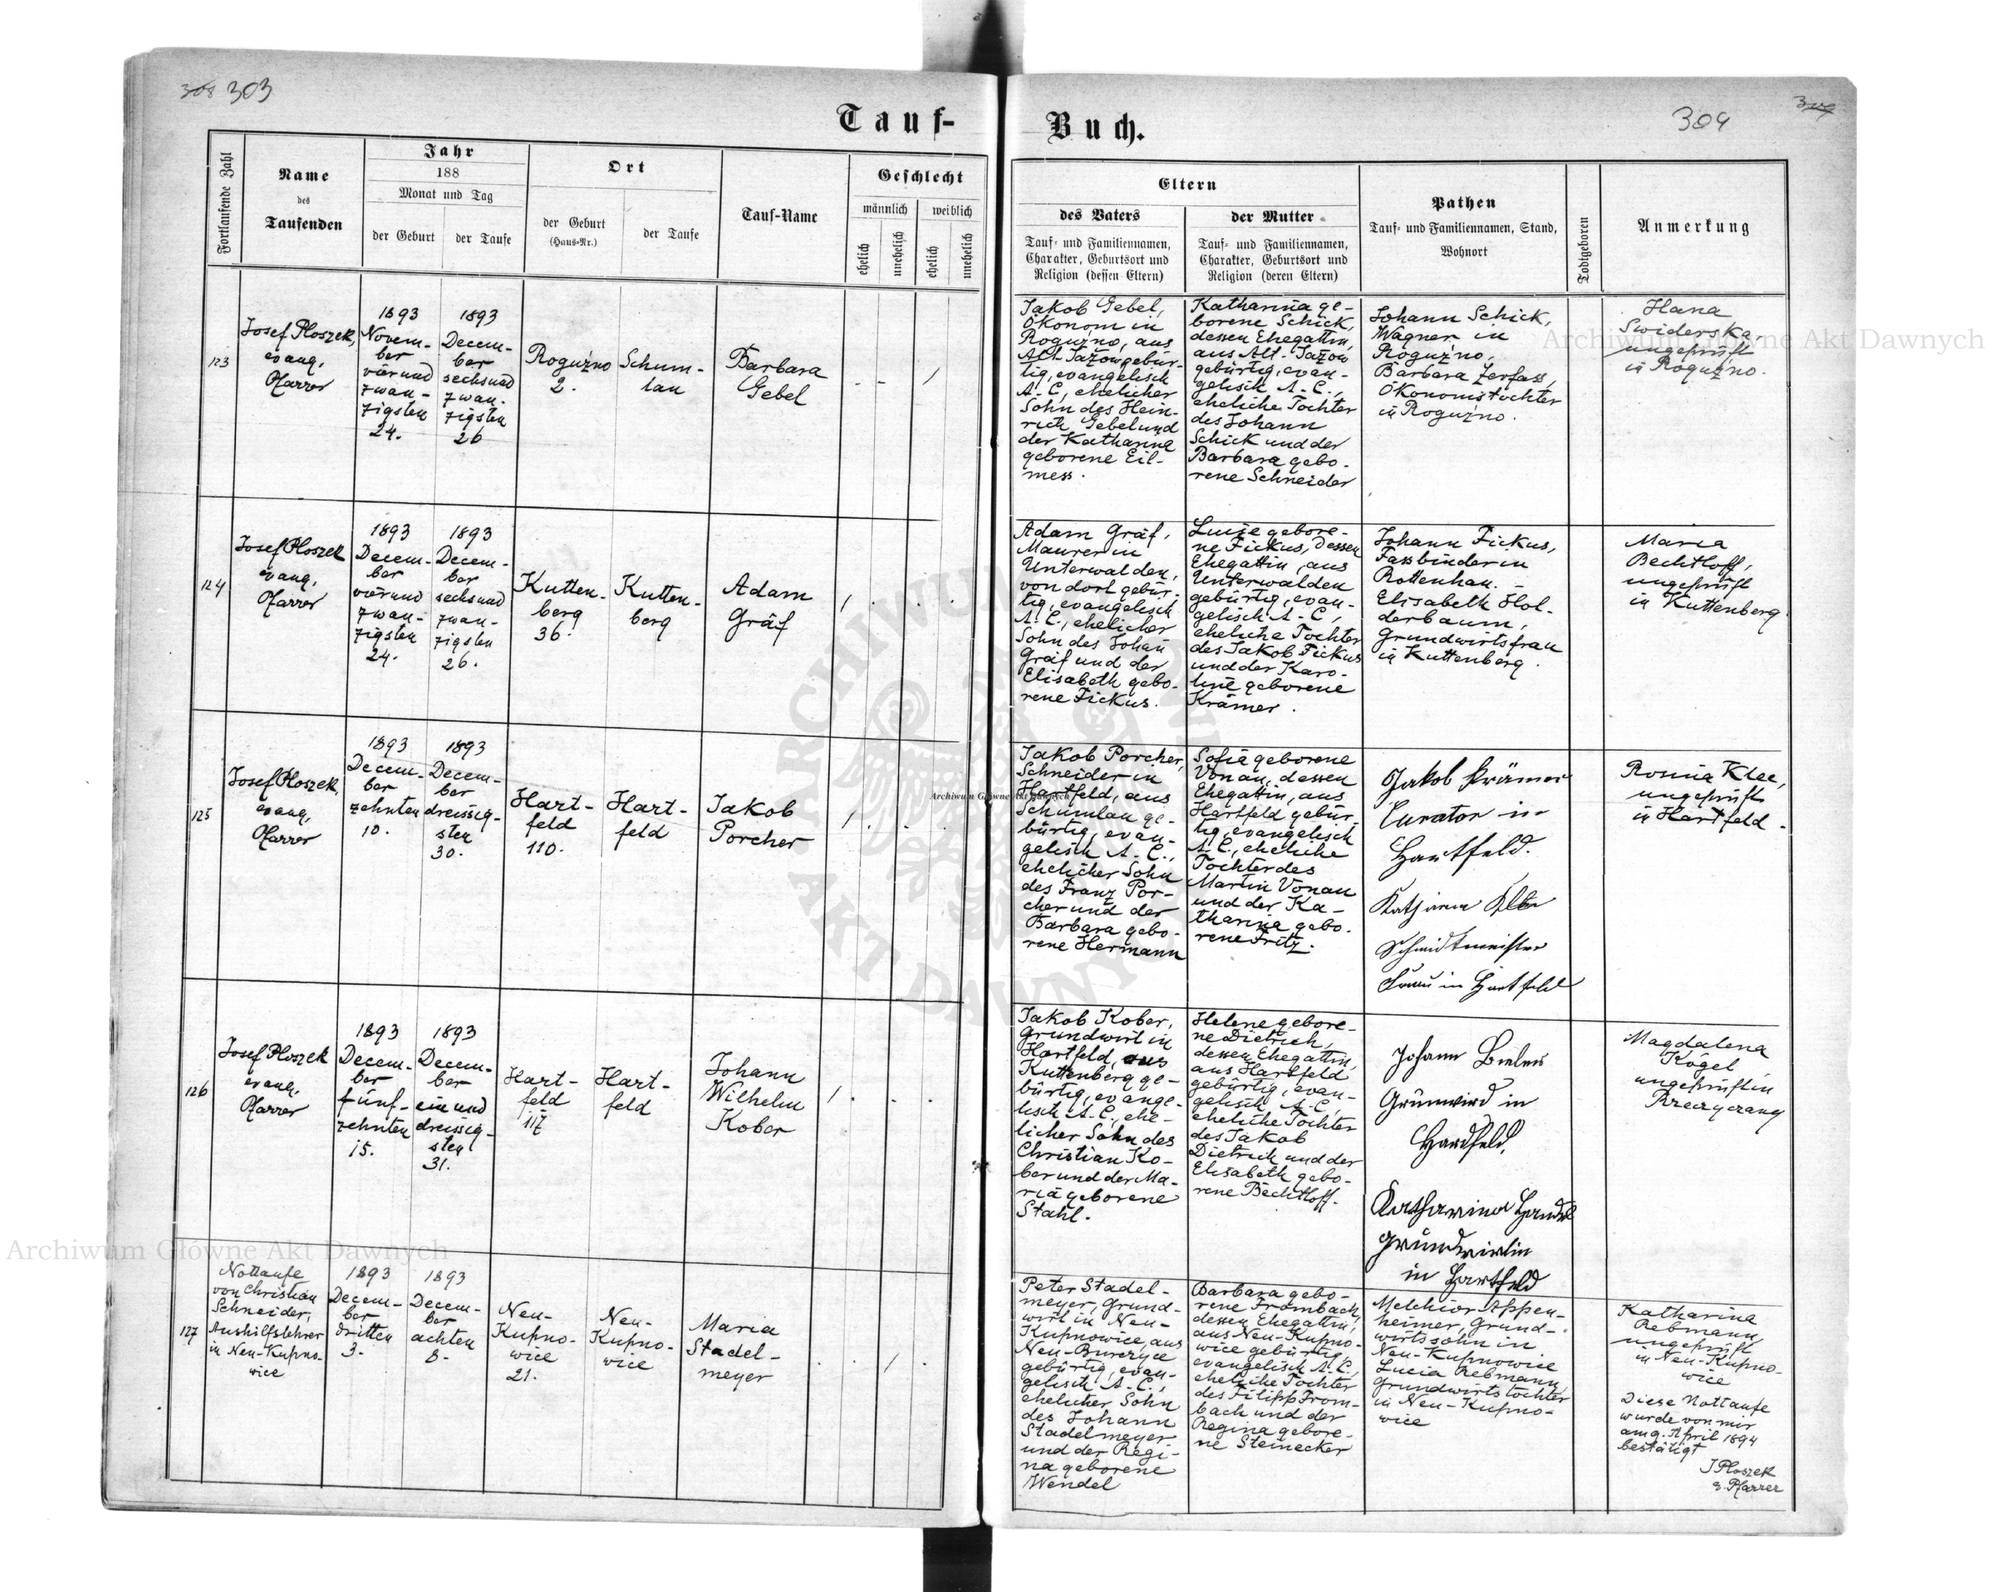 308 303
Tauf-
Fortlaufende Zahl
Name
des
Taufenden
Jahr
188
Monat und Tag
der Geburt
der Taufe
Ort
der Geburt
(Haus-Nr.)
der Taufe
Tauf-Name
Geschlecht
männlich
weiblich
ehelich
unehelich
ehelich
unehelich
123
Josef Ploszek,
evang,
Pfarrer
1893
Novem-
ber
vierund
zwan-
zigsten
24.
1893
Decem-
ber
sechsund
zwan-
zigsten
26
Roguźno
2.
Schum-
lau
Barbara
Gebel
- - /
124
Josef Ploszek
evang,
Pfarrer
1893
Decem-
ber
vierund
zwan-
zigsten
24.
1893
Decem-
ber
sechsund
zwan-
zigsten
26.
Kutten-
berg
36.
Kutten-
berg
Adam
Gräf
/ . . .
125
Josef Ploszek,
evang,
Pfarrer
1893
Decem-
ber
zehnten
10.
1893
Decem-
ber
dreissig-
sten
30.
Hart-
feld
110.
Hart-
feld
Jakob
Porcher
/ . . .
126
Josef Ploszek
evang,
Pfarrer
1893
Decem-
ber
fünf-
zehnten
15.
1893
Decem-
ber
ein und
dreissig-
sten
31.
Hart-
feld
117
Hart-
feld
Johann
Wilhelm
Kober
/ . . .
127
Nottaufe
von Christian
Schneider,
Aushilfslehrer
in Neu-Kupno-
wice
1893
Decem-
ber
dritten
3.
1893
Decem-
ber
achten
8.
Neu-
Kupno-
wice
21.
Neu-
Kupno-
wice
Maria
Stadel-
meyer
. . / .
Buch.
304
Eltern
des Vaters
Tauf- und Familiennamen,
Charakter, Geburtsort und
Religion (dessen Eltern)
der Mutter
Tauf- und Familiennamen,
Charakter, Geburtsort und
Religion (deren Eltern)
Pathen
Tauf- und Familiennamen, Stand,
Wohnort
Todtgeboren
Anmerkung
Jakob Gebel,
Ökonom in
Roguźno, aus
Alt Jażow gebür-
tig, evangelisch
A. C, ehelicher
Sohn des Hein-
rich Gebel und
der Katharina
geborene Eil-
mess.
Katharina ge-
borene Schick,
dessen Ehegattin,
aus Alt-Jażow
gebürtig, evan-
gelisch A. C.,
eheliche Tochter
des Johann
Schick und der
Barbara gebo-
rene Schneider
Johann Schick,
Wagner in
Roguźno,
Barbara Zerfass,
Ökonomstochter
in Roguźno.
Hana
Swiderska,
ungeprüft
in Roguźno.
Adam Gräf,
Maurer in
Unterwalden,
von dort gebür-
tig, evangelisch
A. C., ehelicher
Sohn des Johan
Gräf und der
Elisabeth gebo-
rene Fickus.
Luise gebore-
ne Fickus, dessen
Ehegattin, aus
Unterwalden
gebürtig, evan-
gelisch A. C,
eheliche Tochter
des Jakob Fickus
und der Karo-
line geborene
Krämer.
Johann Fickus,
Fassbinder in
Rottenhan. -
Elisabeth Hol-
derbaum,
Grundwirtsfrau
in Kuttenberg.
Maria
Bechtloff,
ungeprüft
in Kuttenberg.
Jakob Porcher,
Schneider in
Hartfeld, aus
Schumlau ge-
bürtig, evan-
gelisch A. C.,
ehelicher Sohn
des Franz Por-
cher und der
Barbara gebo-
rene Hermann
Sofia geborene
Vonau, dessen
Ehegattin, aus
Hartfeld gebür-
tig, evangelisch
A. C, eheliche
Tochter des
Martin Vonau
und der Ka-
tharina gebo-
rene Fritz.
Jakob Krämer
Curator in
Hartfeld.
Katharina
Schmidtmeister
Frau in Hartfeld
Rosina Klee,
ungeprüft
in Hartfeld.
Jakob Kober,
Grundwirt in
Hartfeld, aus
Kuttenberg ge-
bürtig, evange-
lisch A. C., ehe-
licher Sohn des
Christian Ko-
ber und der Ma-
ria geborene
Stahl.
Helene gebore-
ne Dietrich,
dessen Ehegattin,
aus Hartfeld
gebürtig, evan-
gelisch A. C,
eheliche Tochter
des Jakob
Dietrich und der
Elisabeth gebo-
rene Bechtloff.
Johann
Grunwird in
Hardfeld,
Katharina Handel
Grundwirtin
in Hartfeld
Magdalena
Kögel
ungeprüft in
Brzezyczany
Peter Stadel-
meyer, Grund-
wirt in Neu-
Kupnowice, aus
Neu-Burczyce
gebürtig, evan-
gelisch A. C.,
ehelicher Sohn
des Johann
Stadelmeyer
und der Regi-
na geborene
Wendel
Barbara gebo-
rene Frombach,
dessen Ehegattin,
aus Neu-Kupno-
wice gebürtig,
evangelisch A. C.,
eheliche Tochter
des Filipp From-
bach und der
Regina gebore-
ne Steinecker
Melchior Appen-
heimer, Grund-
wirtssohn in
Neu-Kupnowice
Lucia Rebmann,
Grundwirtstochter
in Neu-Kupno-
wice
Katharina
Rebmann,
ungeprüft
in Neu-Kupno-
wice
Diese Nottaufe
wurde von mir
am 9. April 1894
bestätigt
J Ploszek
e. Pfarrer
Archiwum Główne Akt Dawnych
Archiwum Główne Akt Dawnych
Archiwum Główne Akt Dawnych
ARCHIWUM
AKT DAWNYCH